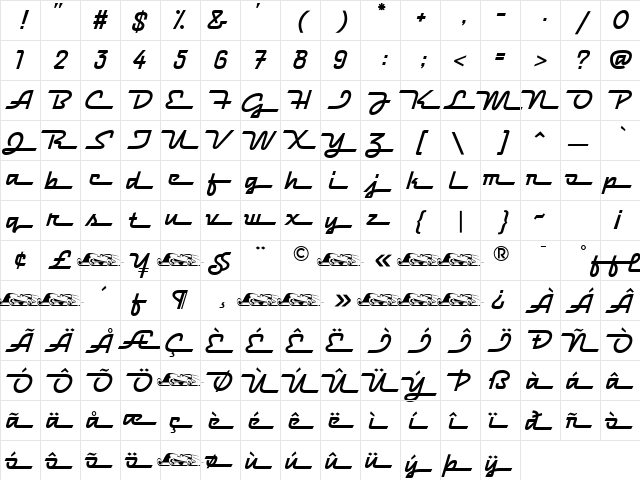 ! " # $ % & ' ( ) * + , - . / 0
1 2 3 4 5 6 7 8 9 : ; < = > ? @
A B C D E F G H I J K L M N O P
Q R S T U V W X Y Z [ \ ] ^ _ `
a b c d e f g h i j k l m n o p
q r s t u v w x y z { | } ~ ¡
¢ £ ¥ § ¨ © « ® ¯ °
´ ¶ ¸ » ¿ À Á Â
Ã Ä Å Æ Ç È É Ê Ë Ì Í Î Ï Ð Ñ Ò
Ó Ô Õ Ö Ø Ù Ú Û Ü Ý Þ ß à á â
ã ä å æ ç è é ê ë ì í î ï đ ñ ò
ó ô õ ö ø ù ú û ü ý þ ÿ